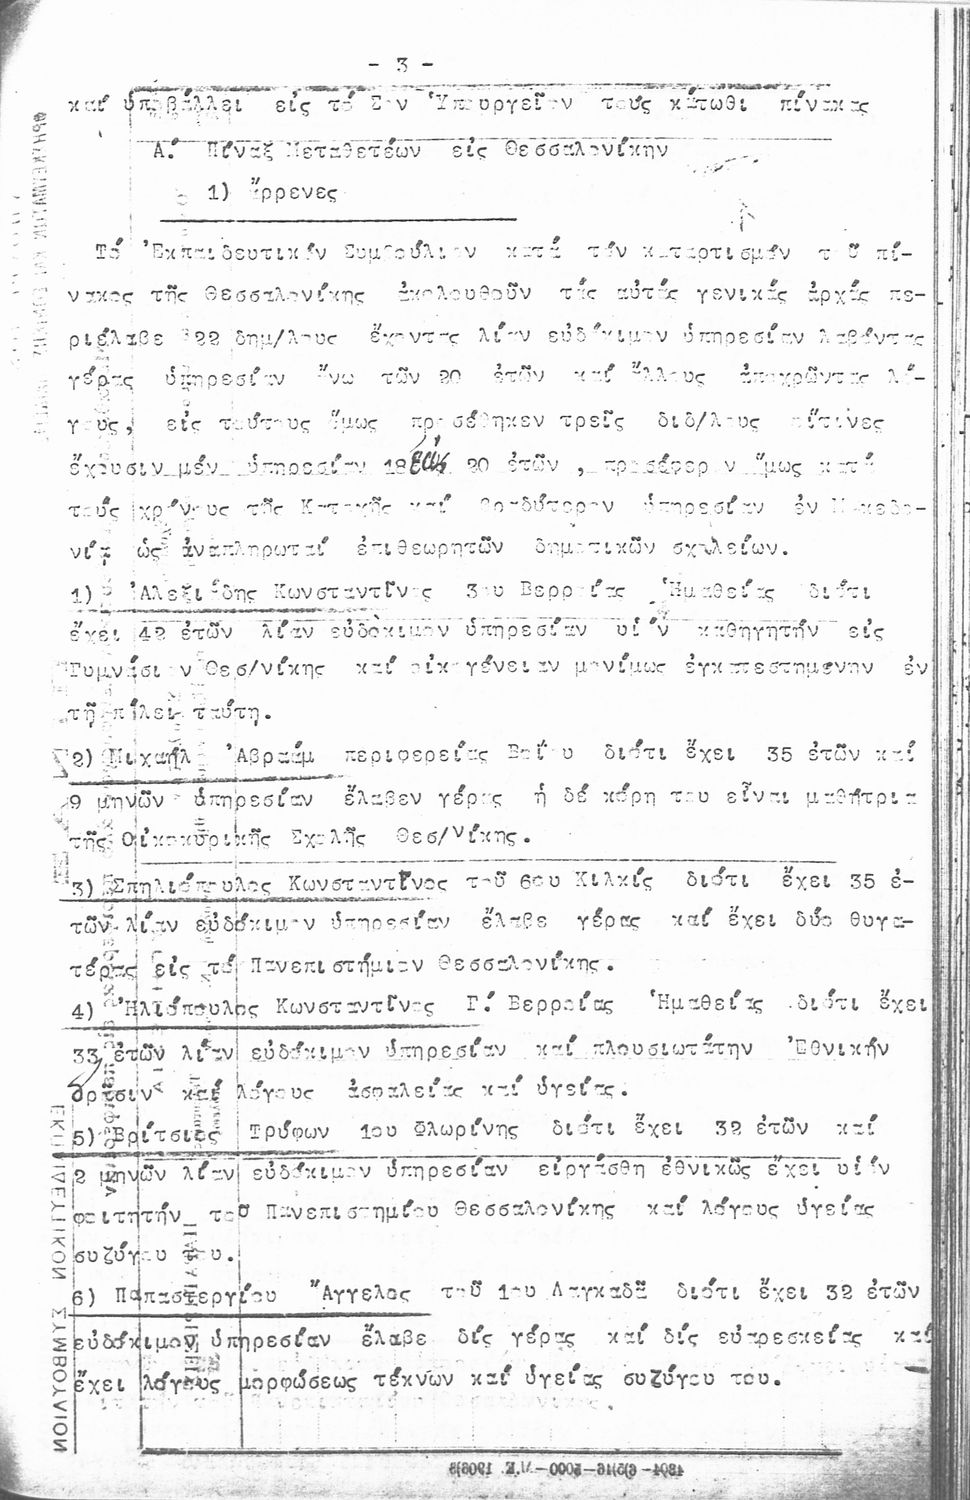 - 3 -
καί ὑποβάλλει εἰς τό Σον Ὑπουργεῖον τούς κάτωθι πίνακας
Α. Πίναξ Μεταθετέων εἰς Θεσσαλονίκην
1) ἄρρενες
Τό Ἐκπαιδευτικόν Συμβούλιον κατά τόν καταρτισμόν τοῦ πί-
νακος τῆς Θεσσαλονίκης ἀκολουθοῦν τάς αὐτάς γενικάς ἀρχάς πε-
ριέλαβε 22 δημ/λους ἔχοντας λίαν εὐδόκιμον ὑπηρεσίαν λαβόντας
γέρας ὑπηρεσίαν ἄνω τῶν 20 ἐτῶν καί ἄλλους ἀποχρῶντας λό-
γους, εἰς τούτους ὅμως προσέθηκεν τρεῖς διδ/λους οἵτινες
ἔχουσιν μέν ὑπηρεσίαν 18 ἕως 20 ἐτῶν , προσέφερον ὅμως κατά
τούς χρόνους τῆς Κατοχῆς καί βραδύτερον ὑπηρεσίαν ἐν Μακεδο-
νίᾳ ὡς ἀναπληρωταί ἐπιθεωρητῶν δημοτικῶν σχολείων.
1) Ἀλεξιάδης Κωνσταντῖνος 3ου Βερροίας Ἡμαθείας διότι
ἔχει 42 ἐτῶν λίαν εὐδόκιμον ὑπηρεσίαν υἱόν καθηγητήν εἰς
Γυμνάσιον Θεσ/νίκης καί οἰκογένειαν μονίμως ἐγκατεστημένην ἐν
τῇ πόλει ταύτῃ.
2) Μιχαήλ Ἀβραάμ περιφερείας Βοΐου διότι ἔχει 35 ἐτῶν καί
9 μηνῶν ὑπηρεσίαν ἔλαβεν γέρας ἡ δέ κόρη του εἶναι μαθήτρια
τῆς Οἰκοκυρικῆς Σχολῆς Θεσ/νίκης.
3) Σπηλιόπουλος Κωνσταντῖνος τοῦ 6ου Κιλκίς διότι ἔχει 35 ἐ-
τῶν λίαν εὐδόκιμον ὑπηρεσίαν ἔλαβε γέρας καί ἔχει δύο θυγα-
τέρας εἰς τό Πανεπιστήμιον Θεσσαλονίκης.
4) Ἠλιόπουλος Κωνσταντῖνος Γ. Βερροίας Ἡμαθείας διότι ἔχει
33 ἐτῶν λίαν εὐδόκιμον ὑπηρεσίαν καί πλουσιωτάτην Ἐθνικήν
δρᾶσιν καί λόγους ἀσφαλείας καί ὑγείας.
5) Βρίτσιος Τρύφων 1ου Φλωρίνης διότι ἔχει 32 ἐτῶν καί
2 μηνῶν λίαν εὐδόκιμον ὑπηρεσίαν εἰργάσθη ἐθνικῶς ἔχει υἱόν
φοιτητήν τοῦ Πανεπιστημίου Θεσσαλονίκης καί λόγους ὑγείας
συζύγου του.
6) Παπαστεργίου Ἄγγελος τοῦ 1ου Λαγκαδᾶ διότι ἔχει 32 ἐτῶν
εὐδόκιμον ὑπηρεσίαν ἔλαβε δίς γέρας καί δίς εὐαρεσκείας καί
ἔχει λόγους μορφώσεως τέκνων καί ὑγείας συζύγου του.
ΕΚΠΑΙΔΕΥΤΙΚΟΝ ΣΥΜΒΟΥΛΙΟΝ